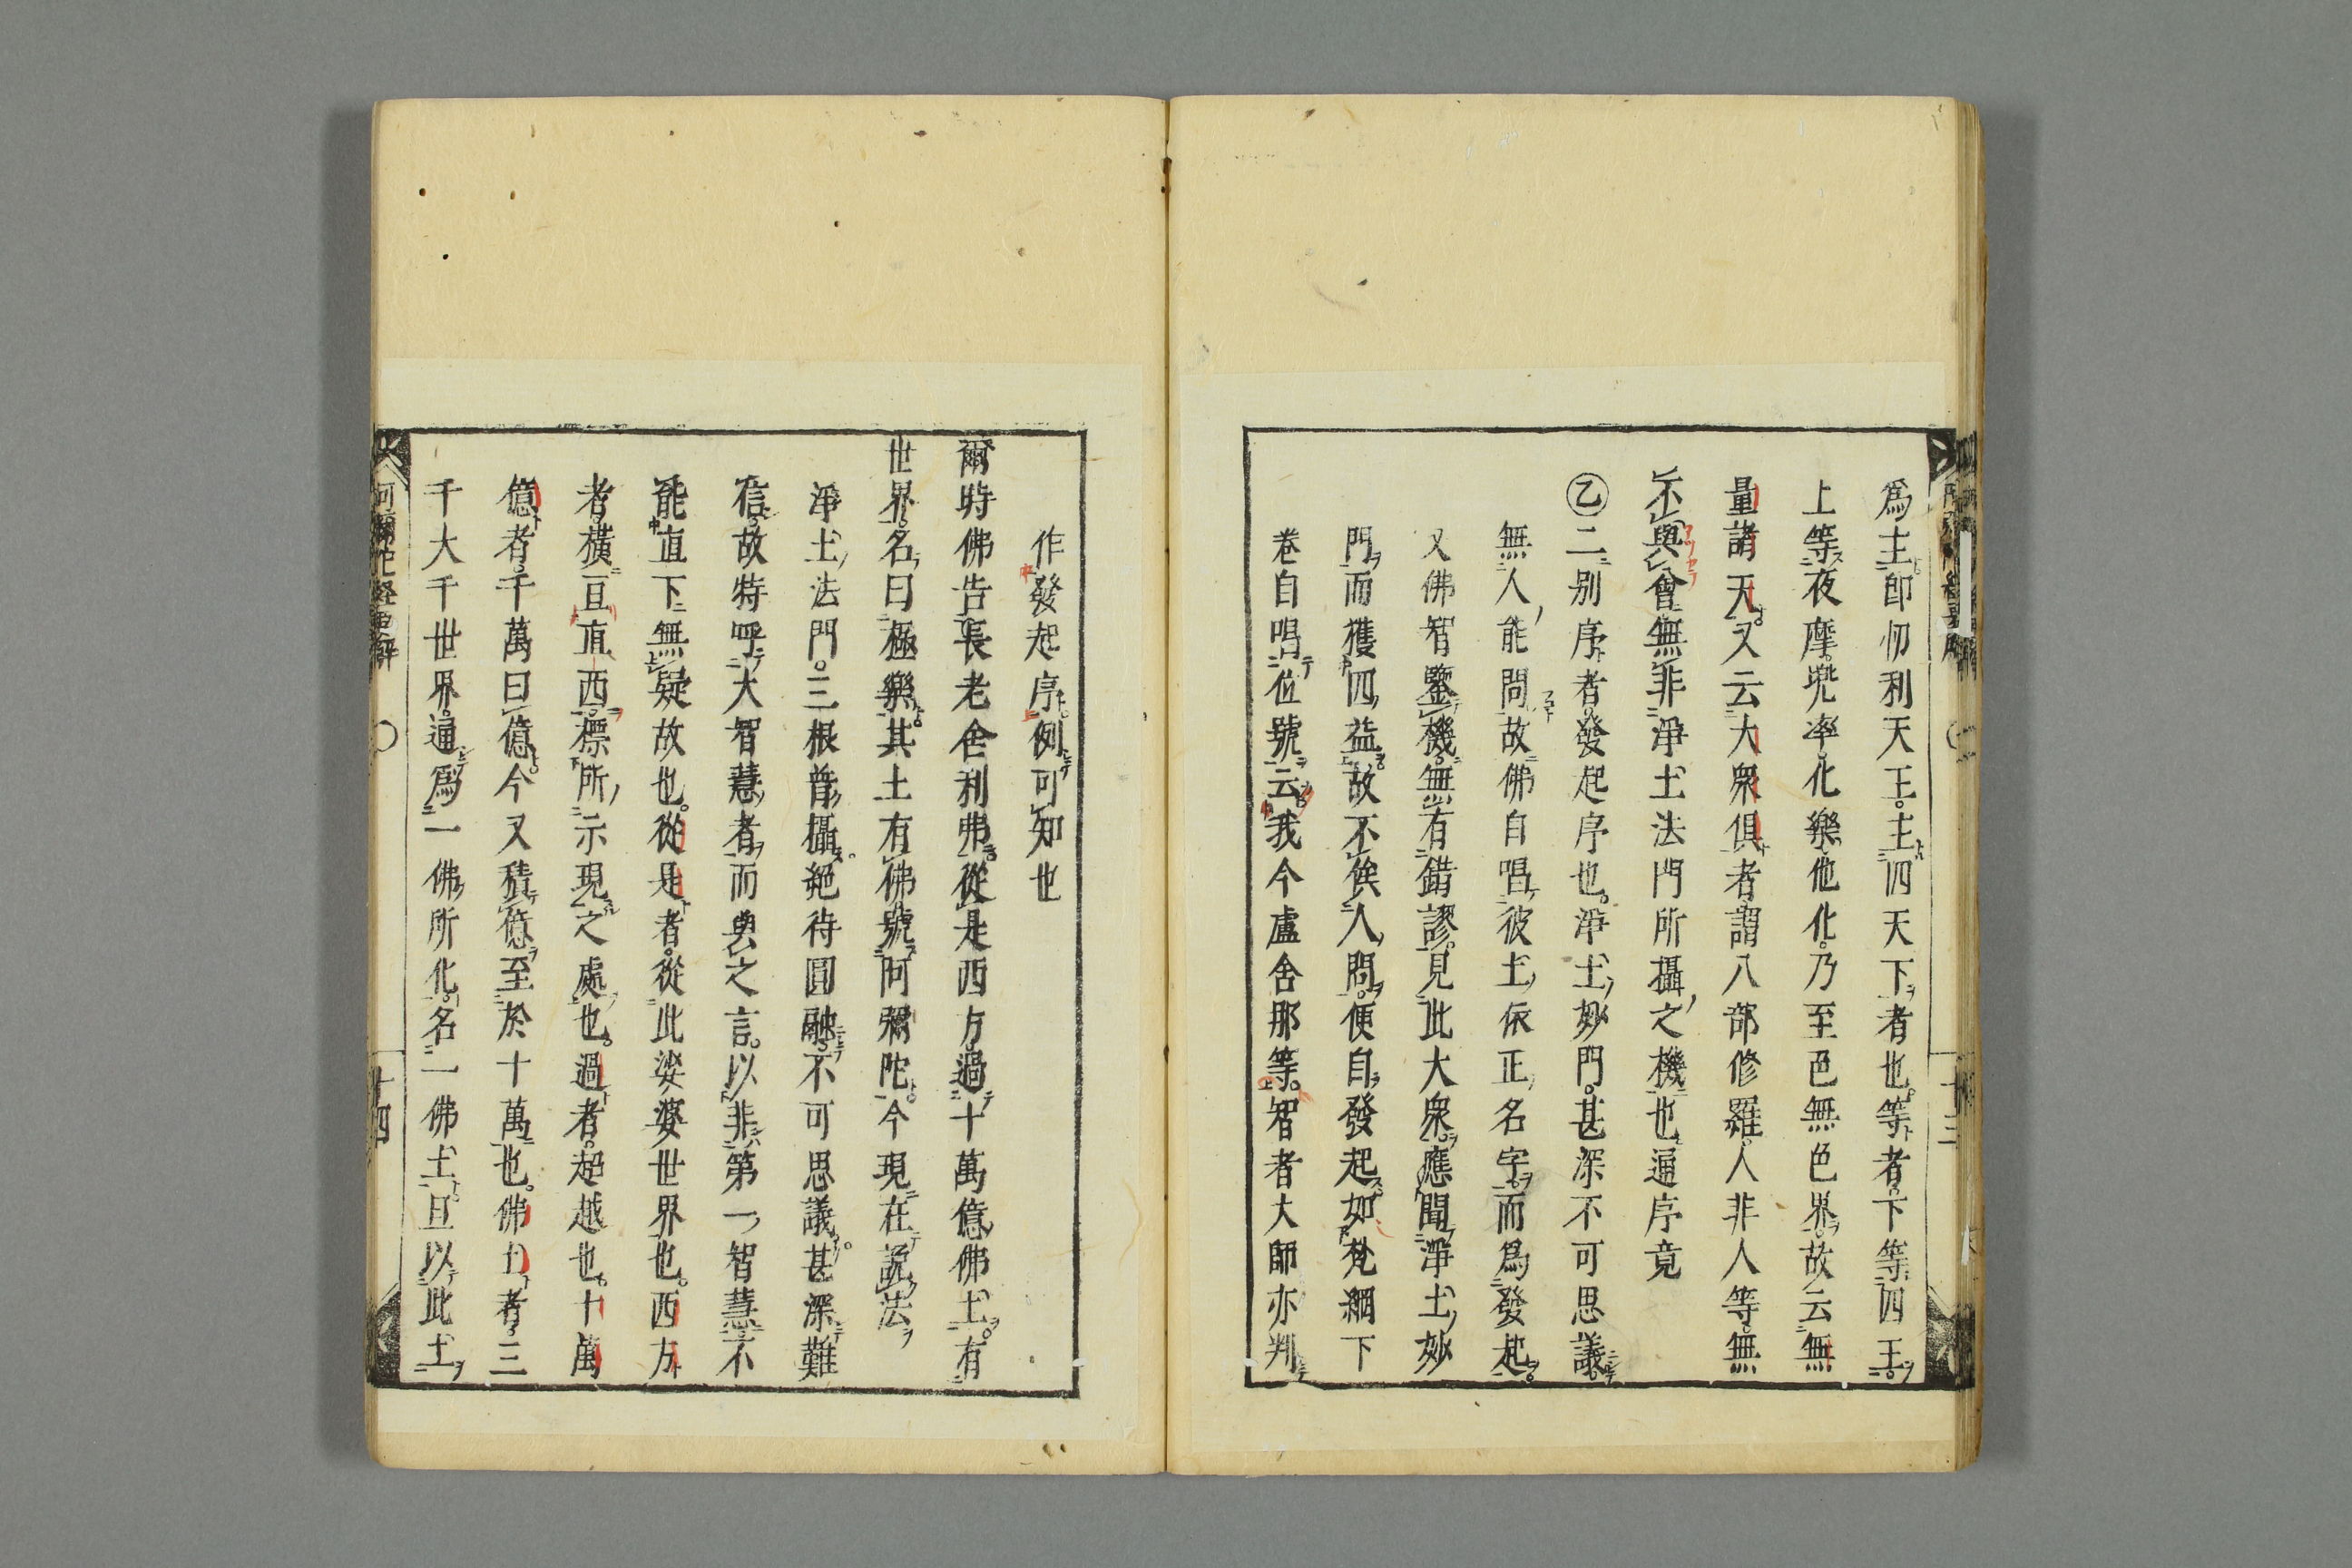 爲主即忉利天王。主四天下者也。等者下等四王。
上等夜摩兜率化樂他化。乃至色無色界。故云無
量諸天。又云大衆俱者。謂八部修羅。人非人等。無
不與會無非淨土法門所攝之機也通序竟
㊁二別序者發起序也。淨土妙門。甚深不可思議
無人能問故佛自唱彼土依正名字而爲發起。
又佛智鑒機無有錯謬。見此大衆。應聞淨土妙
門而獲四益。故不俟人問。便自發起。如梵綱下
卷自唱位號云我今盧舍那等。智者大師亦判
作發起序。例可知也
爾時佛告長老舍利弗。從是西方。過十萬億佛土。有
世界。名曰極樂。其土有佛號阿彌陀。今現在説法
淨土法門。三根普攝。絕待圓融。不可思議。甚深難
信。故特呼大智慧者而與之言。以非第一智慧不
能直下無疑故也。從是者。從此娑婆世界也。西方
者。橫亘直西。標所示現之處也。過者。超越也。十萬
億者。千萬曰億。今又積億至於十萬也。佛土者。三
千大千世界。通爲一佛所化。名一佛土。且以此土
阿彌陀經要解
十四